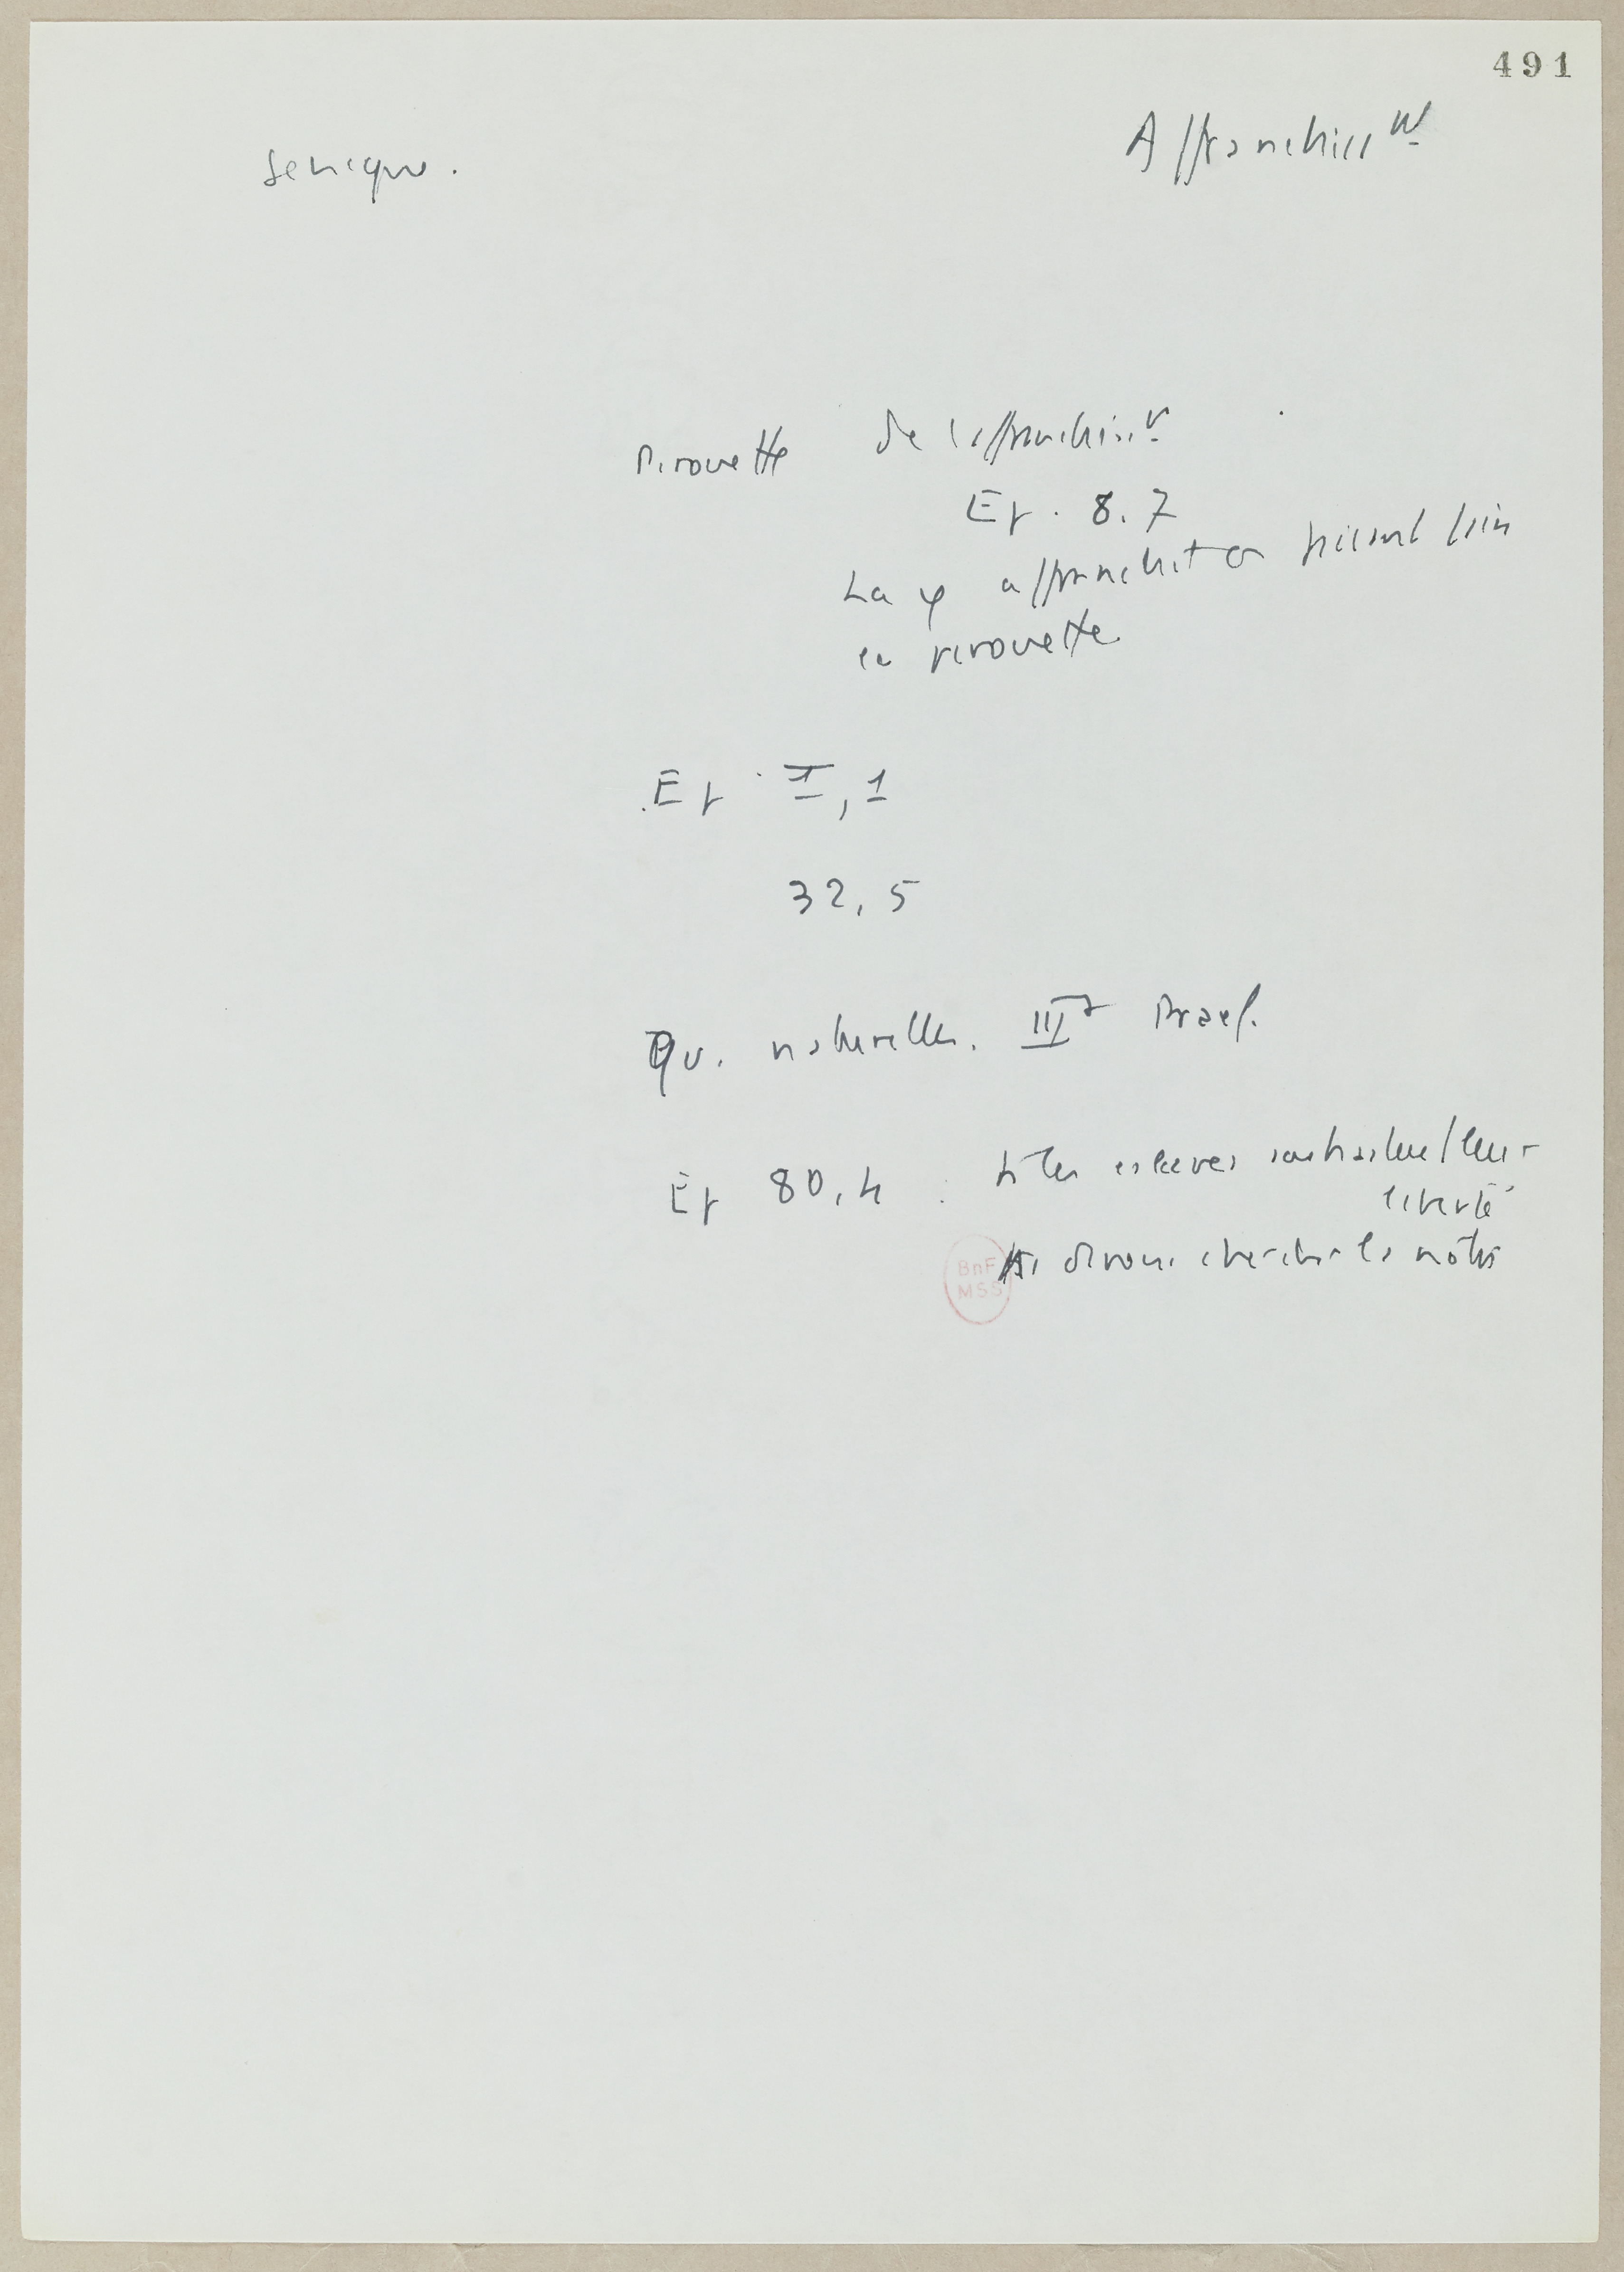 491
Seneque.
Affranchisst
Pirouette de l'affranchisst
Ep. 8.7
La φ affranchit en faisant
la pirouette
Ep. I, 1
32, 5
Qu. naturelles. III Praef.
Ep 80,4 : les esclaves leur
liberté
devons chercher la nôtre
BnF
MSS